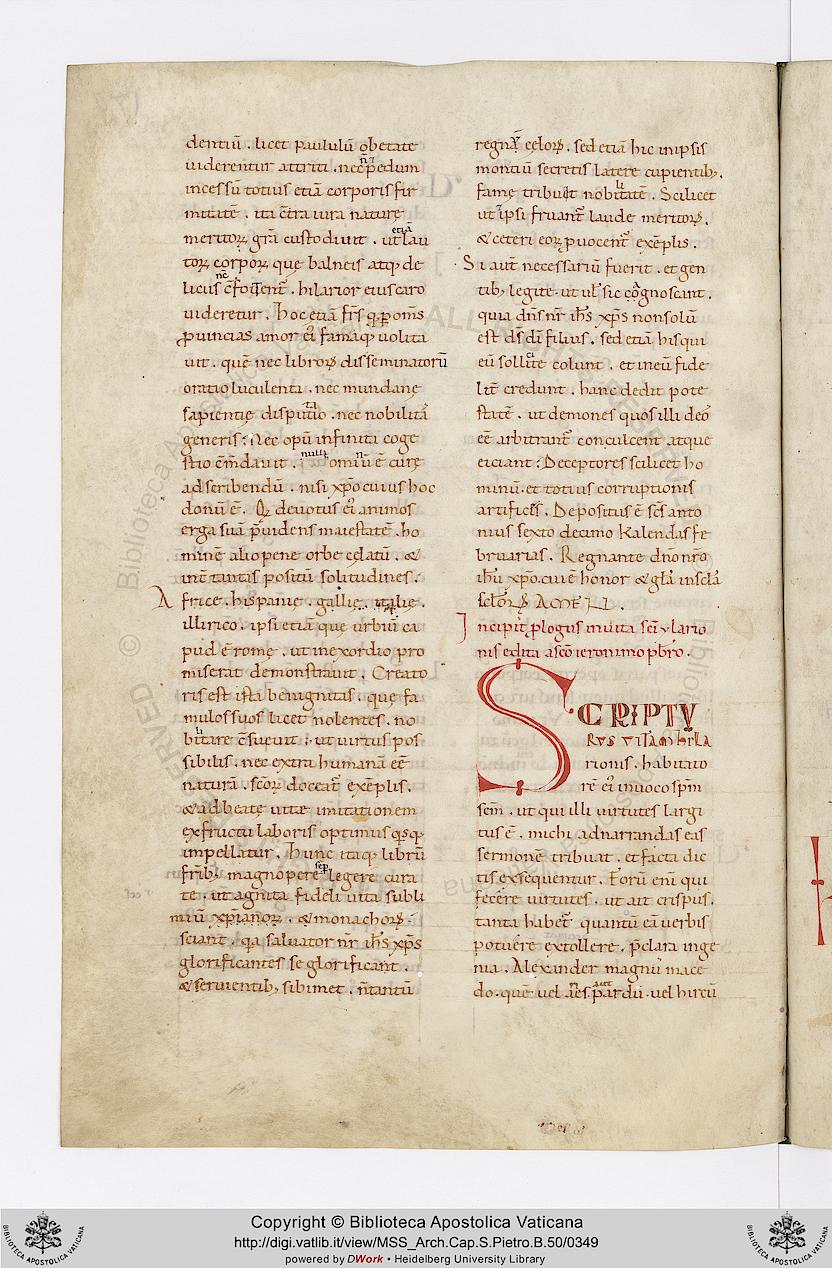 dentiū . licet paululū obetate
uiderentur attriti . necp̄edum
incessū totius etiā corporis fir
mitatē . ita c̄tra iura naturę
meritoꝝ gr̄a custodiuit . ut lau
etiā
toꝝ corpoꝝ quę balneis atq; de
licus
uideretur . hoc etiā fr̄s qꝑ p om̄s
ꝓuincias amor ei' famaq; uolita
uit . quē nec libroꝝ disseminatorū
oratio luculenta . nec mundanę
sapientię disputio . nec nobilitā
ta
generis : Nec opū infiniti coge
stio c̄m̄dauit . omniū ē curę
adscribendū . nisi xp̄o cuius hoc
donū ē . Qi deuotus ei' animos
erga suā p̄uidens maiestatē . ho
minē alio pene orbe cęlatū . &
int̄ tantas positū solitudines .
Africę . hispanię . gallię . italię .
illirico . ipsi etiā quę urbiū ca
pud ē romę . ut in exordio pro
miserat demonstrauit . Creato
ris est ista benignitas . quę fa
mulos suos licet nolentes . no
bitare c̄sueuit : ut uirtus pos
sibilis . nec extra humanā eē
naturā . scōꝝ doceat̄ exēplis .
& ad beatę uitae imitationem
ex fructu laboris optimus qsq;
impellatur . hunc itaq; librū
fr̄ib; magnopere legere cura
sēp
te . ut agnita fideli uita subli
miū xp̄ianoꝝ . & monachoꝝ :
sciant . qa saluator nr̄ ih̄s xp̄s
glorificantes se glorificant .
& seruientib; sibimet . n̄tantū
regnū cęloꝝ . sed etiā hic in ipsis
montiū secretis latere cupientib; .
famę tribuat nobitatē . Scilicet
li
ut ipsi fruant̄ laude meritoꝝ .
& ceteri eoꝝ ꝓuocent̄ exēplis .
Si aut̄ necessariū fuerit . et gen
tib; legite . ut ul' sic cognoscant .
quia dn̄s nr̄ ih̄s xp̄s nonsolū
est ds̄ dī filius . sed etiā his qui
eū sollite colunt . et in eū fide
ci
lit̄ credunt . hanc dedit pote
statē . ut demones quos illi deos
eē arbitrant̄ conculcent atque
eiciant : Deceptores scilicet ho
minū . et totius corruptionis
artifices . Depositus ē scs̄ anto
nius sexto decimo kalendas fe
bruarias . Regnante dn̄o nr̄o
ih̄u xp̄o . cui ē honor & glā in sclā
sclōꝝ AMEN .
Incipit ꝓlogus in uita scī ylario
nis edita a scō ieronimo p̄br̄o .
SCRIPTV
RVS VITAM hILA
rionis . habitato
rē ei' inuoco sp̄m
scm̄ . ut qui illi uirtutes largi
tus ē . michi ad narrandas eas
sermonē tribuat . et facta dic
tis exsequentur . Eorū eni qui
fecere uirtutes . ut ait crispus .
tanta habet̄ quantū eā uerbis
potuere extollere . p̄clara inge
nia . Alexander magnus mace
do . quē uel ęs . pardū . uel hircū
Copyright © Biblioteca Apostolica Vaticana
http://digi.vatlib.it/view/MSS_Arch.Cap.S.Pietro.B.50/0349
powered by DWork • Heidelberg University Library